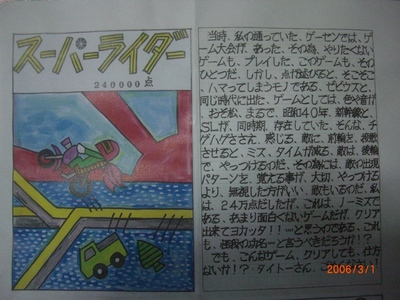 スーパーライダー
240000点
当時、私の通っていた、ゲーセンでは、ゲ
ーム大会が、あった。その為、やりたくない
ゲームも、プレイした、このゲームも、その
ひとつだ。しかし、点が延びると、そこそこ
、ハマってしまうモノである、ゼビウスと、
同じ時代に出た、ゲームとしては、色や音が
、おそ松、まるで、昭和40年、新幹線と、
SLが、同時期、存在していた、そんな、チ
グハグささえ、感じる、敵に、前輪を、接触
させると、ミス、タイムが減る、敵は、後輪
で、やっつけるのだ、その為には、敵の出現
パターンを、覚える事が、大切、やっつける
より、無視した方がいい、敵もいるのだ、私
は、24万点だしたが、これは、ノーミスで
ある、あまり面白くないゲームだが、クリア
出来てヨカッタ!!…と思うのである、これ
も、怪我の功名…と言うべきだろうか!?
でも、こんなゲーム、クリアしても、仕方
ないか!?タイトーさん、
2006/3/1